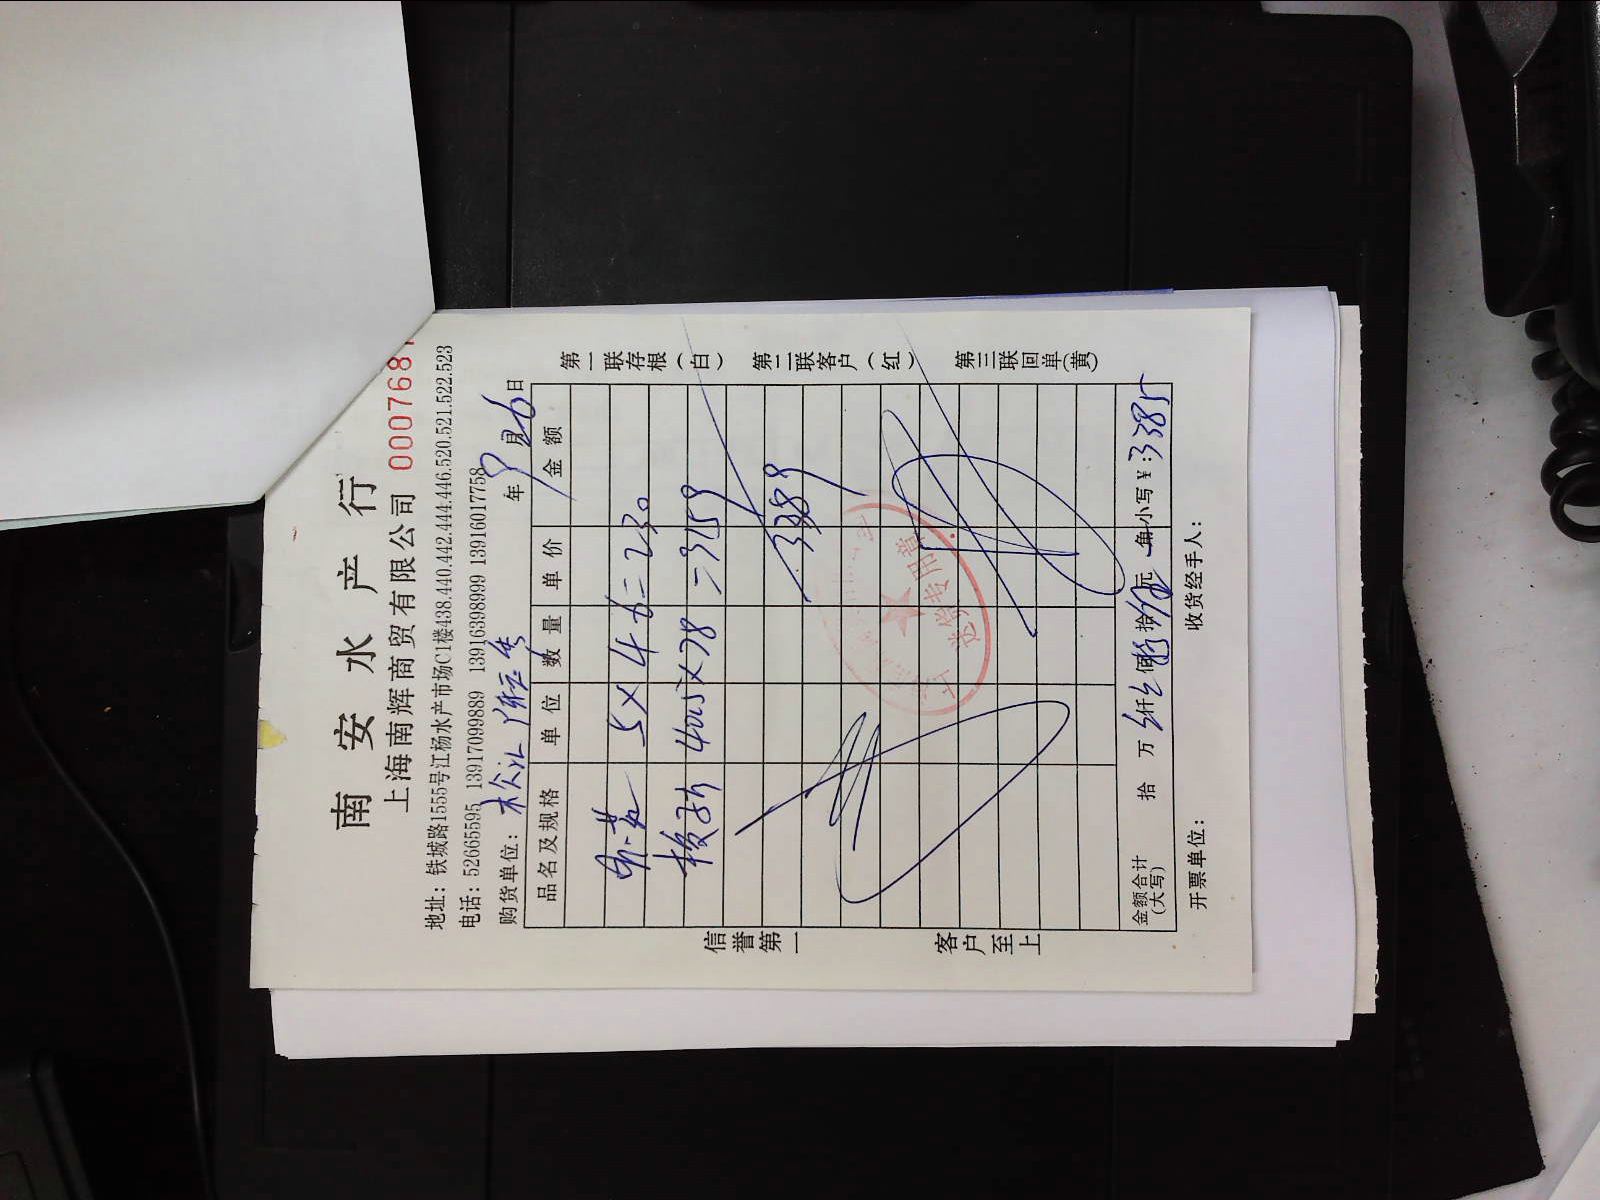 南安水产行
上海南辉商贸有限公司 000768
地址：铁城路1555号江杨水产市场C1楼438.440.442.444.446.520.521.522.523
电话：52665595 13917099889 13916398999 13916017758
购货单位： 年 9 月 6 日
品名及规格 单位 数量 单价 金额
5×46=230
梭子 40.5×78=3159
3389
送货专用章
金额合计（大写） 拾 万 仟 佰 拾 元 角 小写￥：3385
开票单位： 收货经手人：
信誉第一 客户至上
第一联存根（白） 第二联客户（红） 第三联回单（黄）